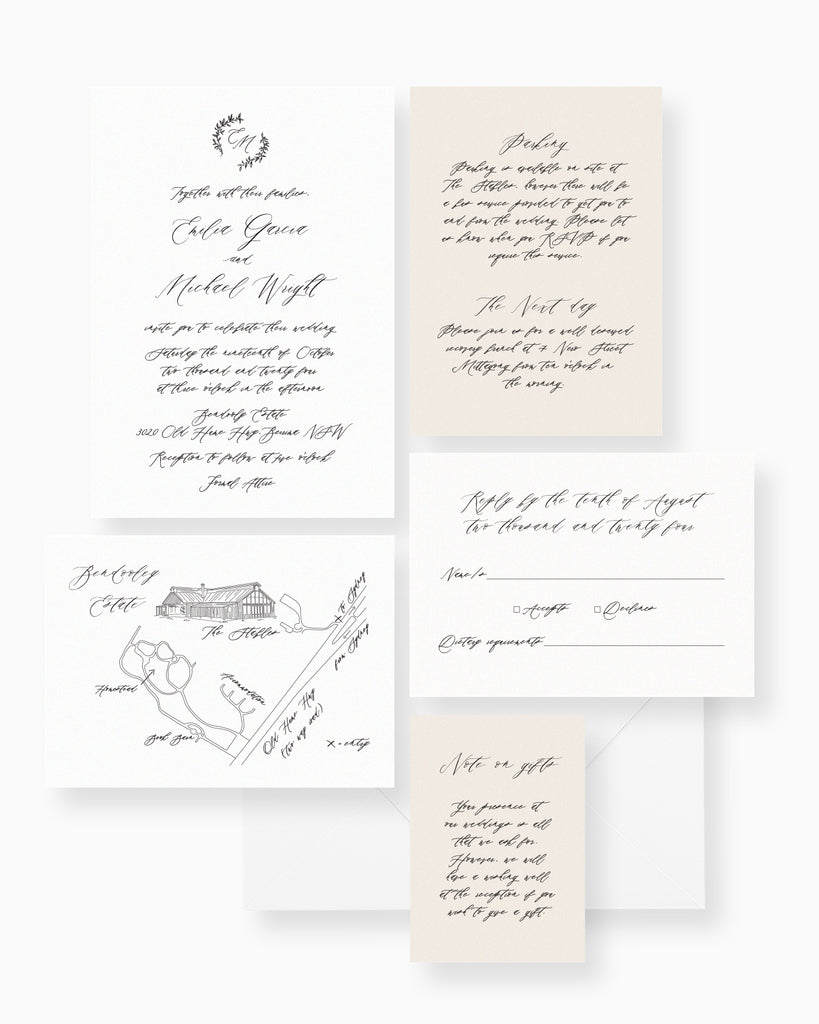 EM
Together with their families,
Emilia Garcia
and
Michael Wright
invite you to celebrate their wedding
Saturday the nineteenth of October
two thousand and twenty four
at three o'clock in the afternoon
Bendooly Estate
3020 Old Hume Hwy Berrima NSW
Reception to follow at five o'clock
Formal Attire
Parking
Parking is available on site at
The Stables, however there will be
a bus service provided to get you to
and from the wedding. Please let
us know when you RSVP if you
require this service.
The Next day
Please join us for a well deserved
recovery brunch at 7 New Street
Mittagong from ten o'clock in
the morning.
Reply by the tenth of August
two thousand and twenty four
Name/s
Accepts Declines
Dietary requirements
Bendooley
Estate
The Stables
x to Sydney
from Sydney
Homestead
Accommodation
Book Barn
Old Hume Hwy
(two way road)
x = entry
Note on gifts
Your presence at
our weddings is all
that we ask for.
However, we will
have a wishing well
at the reception if you
wish to give a gift.